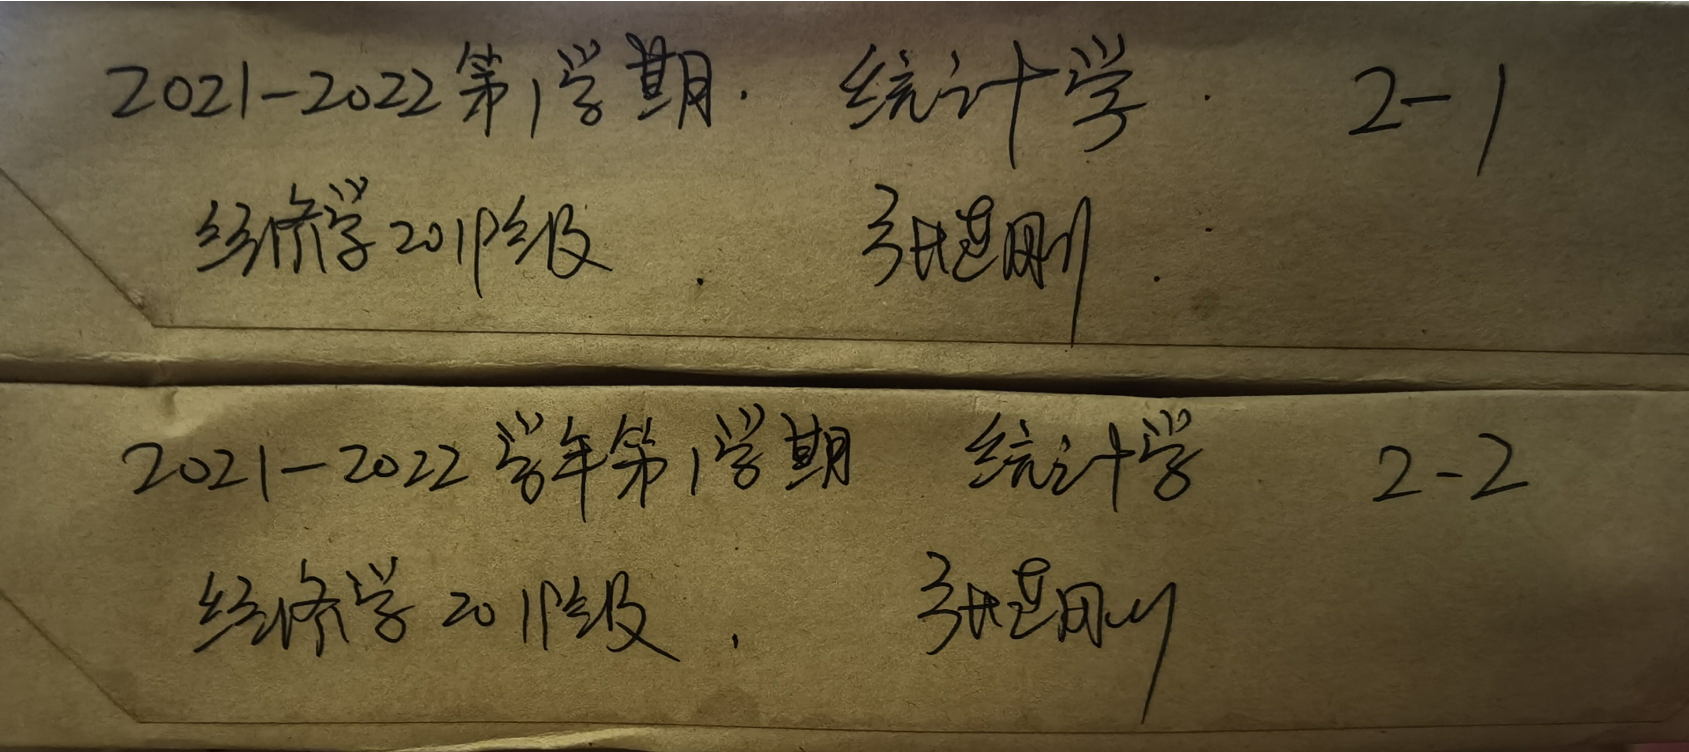 2021-2022第1学期. 统计学 2-1
经济学2019级 张建刚
2021-2022学年第1学期 统计学 2-2
经济学2019级 张建刚